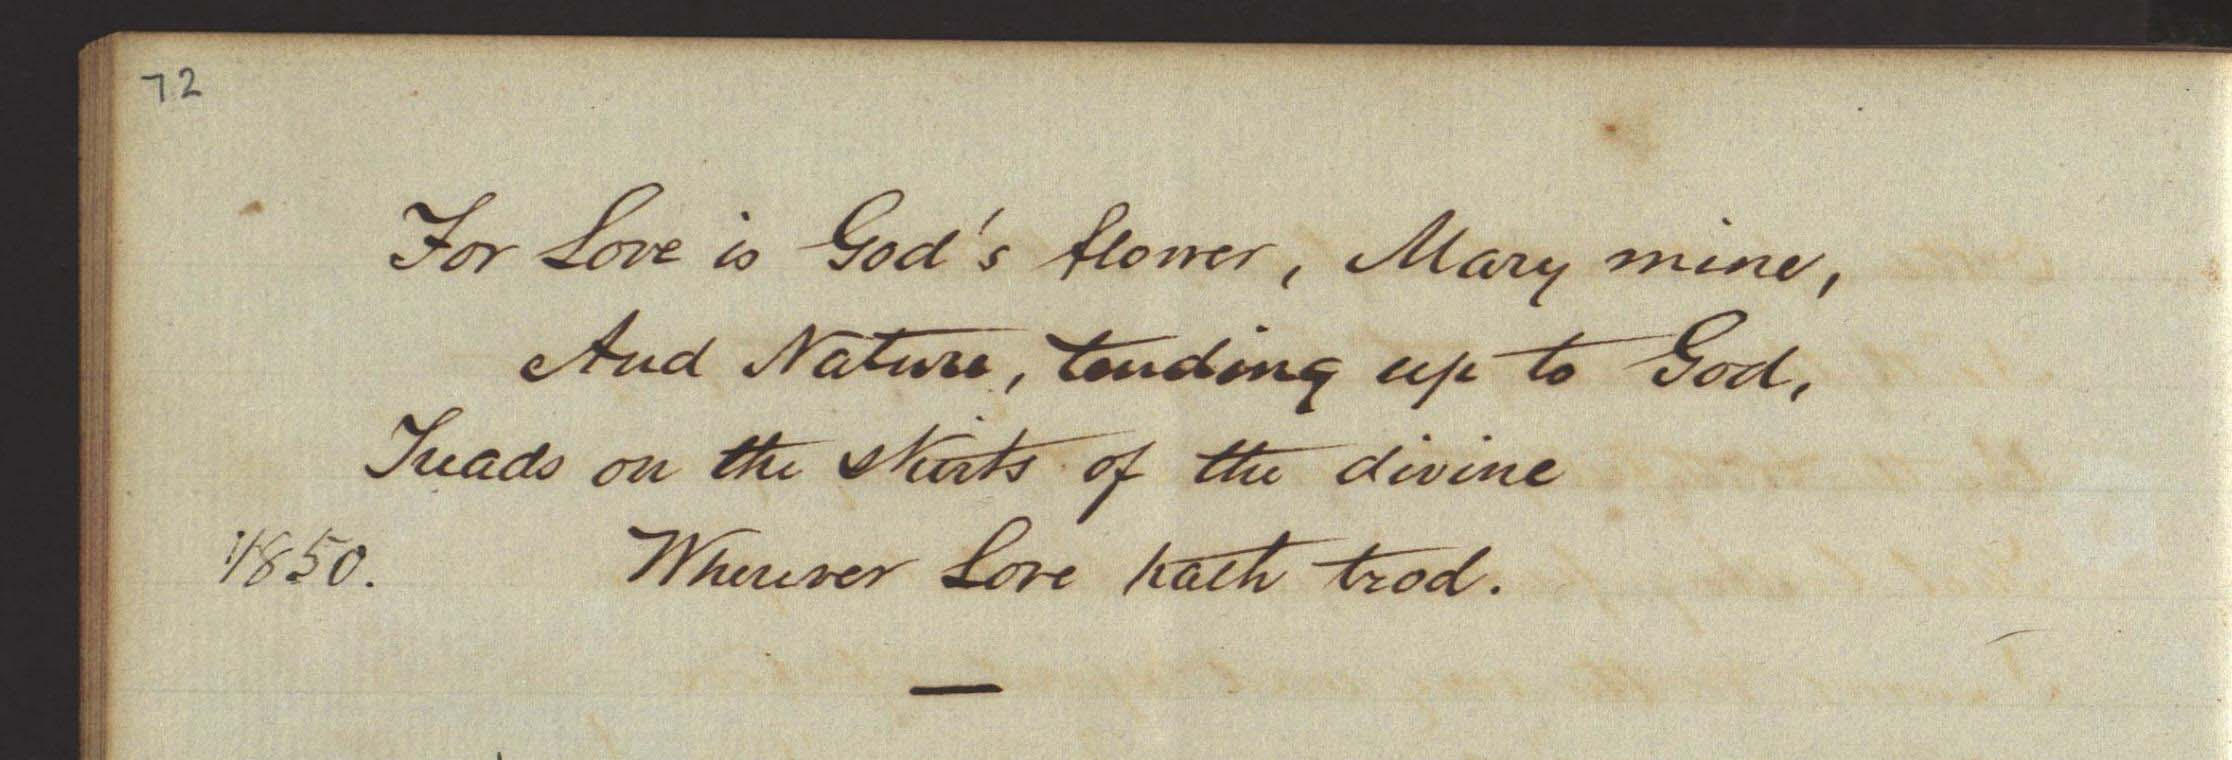 72
For Love is God's flower, Mary mine,
And Nature, tending up to God,
Treads on the skirts of the divine
1850. Wherever Love hath trod.